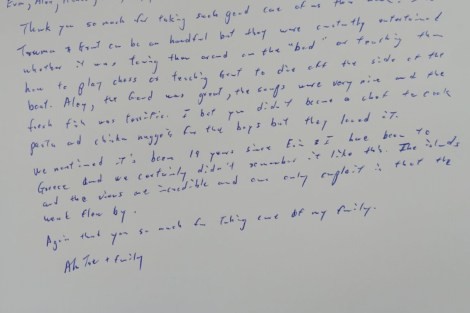 Thank you so much for taking such good care of me this
Truman & Grant can be an handful but they were constantly entertained
whether it was towing them around on the "bed" or teaching them
how to play chess or teaching Grant to dive off the side of the
boat. Also, the food was good, the soups were very nice and the
fresh fish was terrific. I bet you didn't become a chef to cook
pasta and chicken nuggets for the boys but they loved it.
We mentioned it's been 19 years since Erin & I have been to
Greece and we certainly didn't remember it like this. The islands
and the views are incredible and our only complaint is that the
week flew by.
Again thank you so much for taking care of my family.
+ family